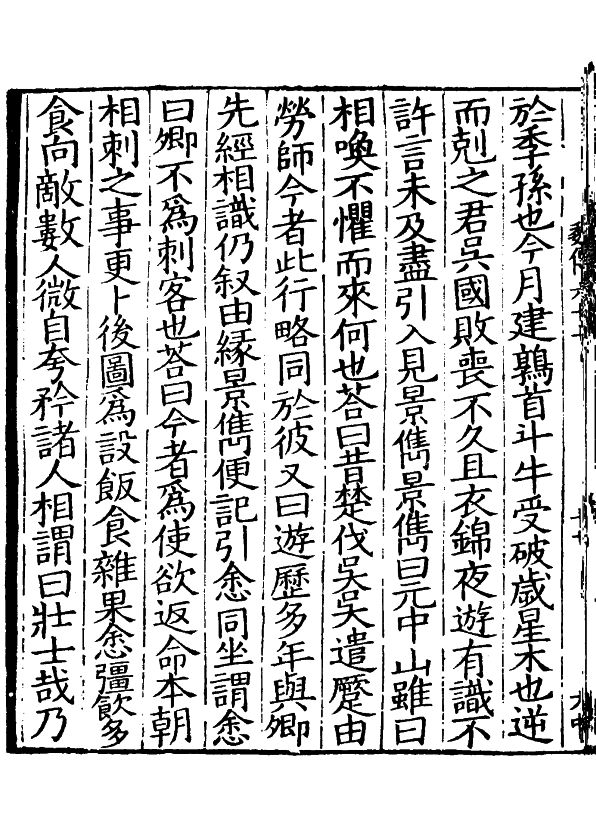 於季孫也今月建鶉首斗牛受破歲星木也逆
而剋之君吳國敗喪不久且衣錦夜遊有識不
許言未及盡引入見景儁景儁曰元中山雖曰
相喚不懼而來何也荅曰昔楚伐吳吳遣蹷由
勞師今者此行略同於彼又曰遊歷多年與卿
先經相識仍叙由緣景儁便記引悆同坐謂悆
曰卿不爲刺客也荅曰今者爲使欲返命本朝
相刺之事更卜後圖爲設飯食雜果悆彊飮多
食向敵數人微自夸矜諸人相謂曰壯士哉乃